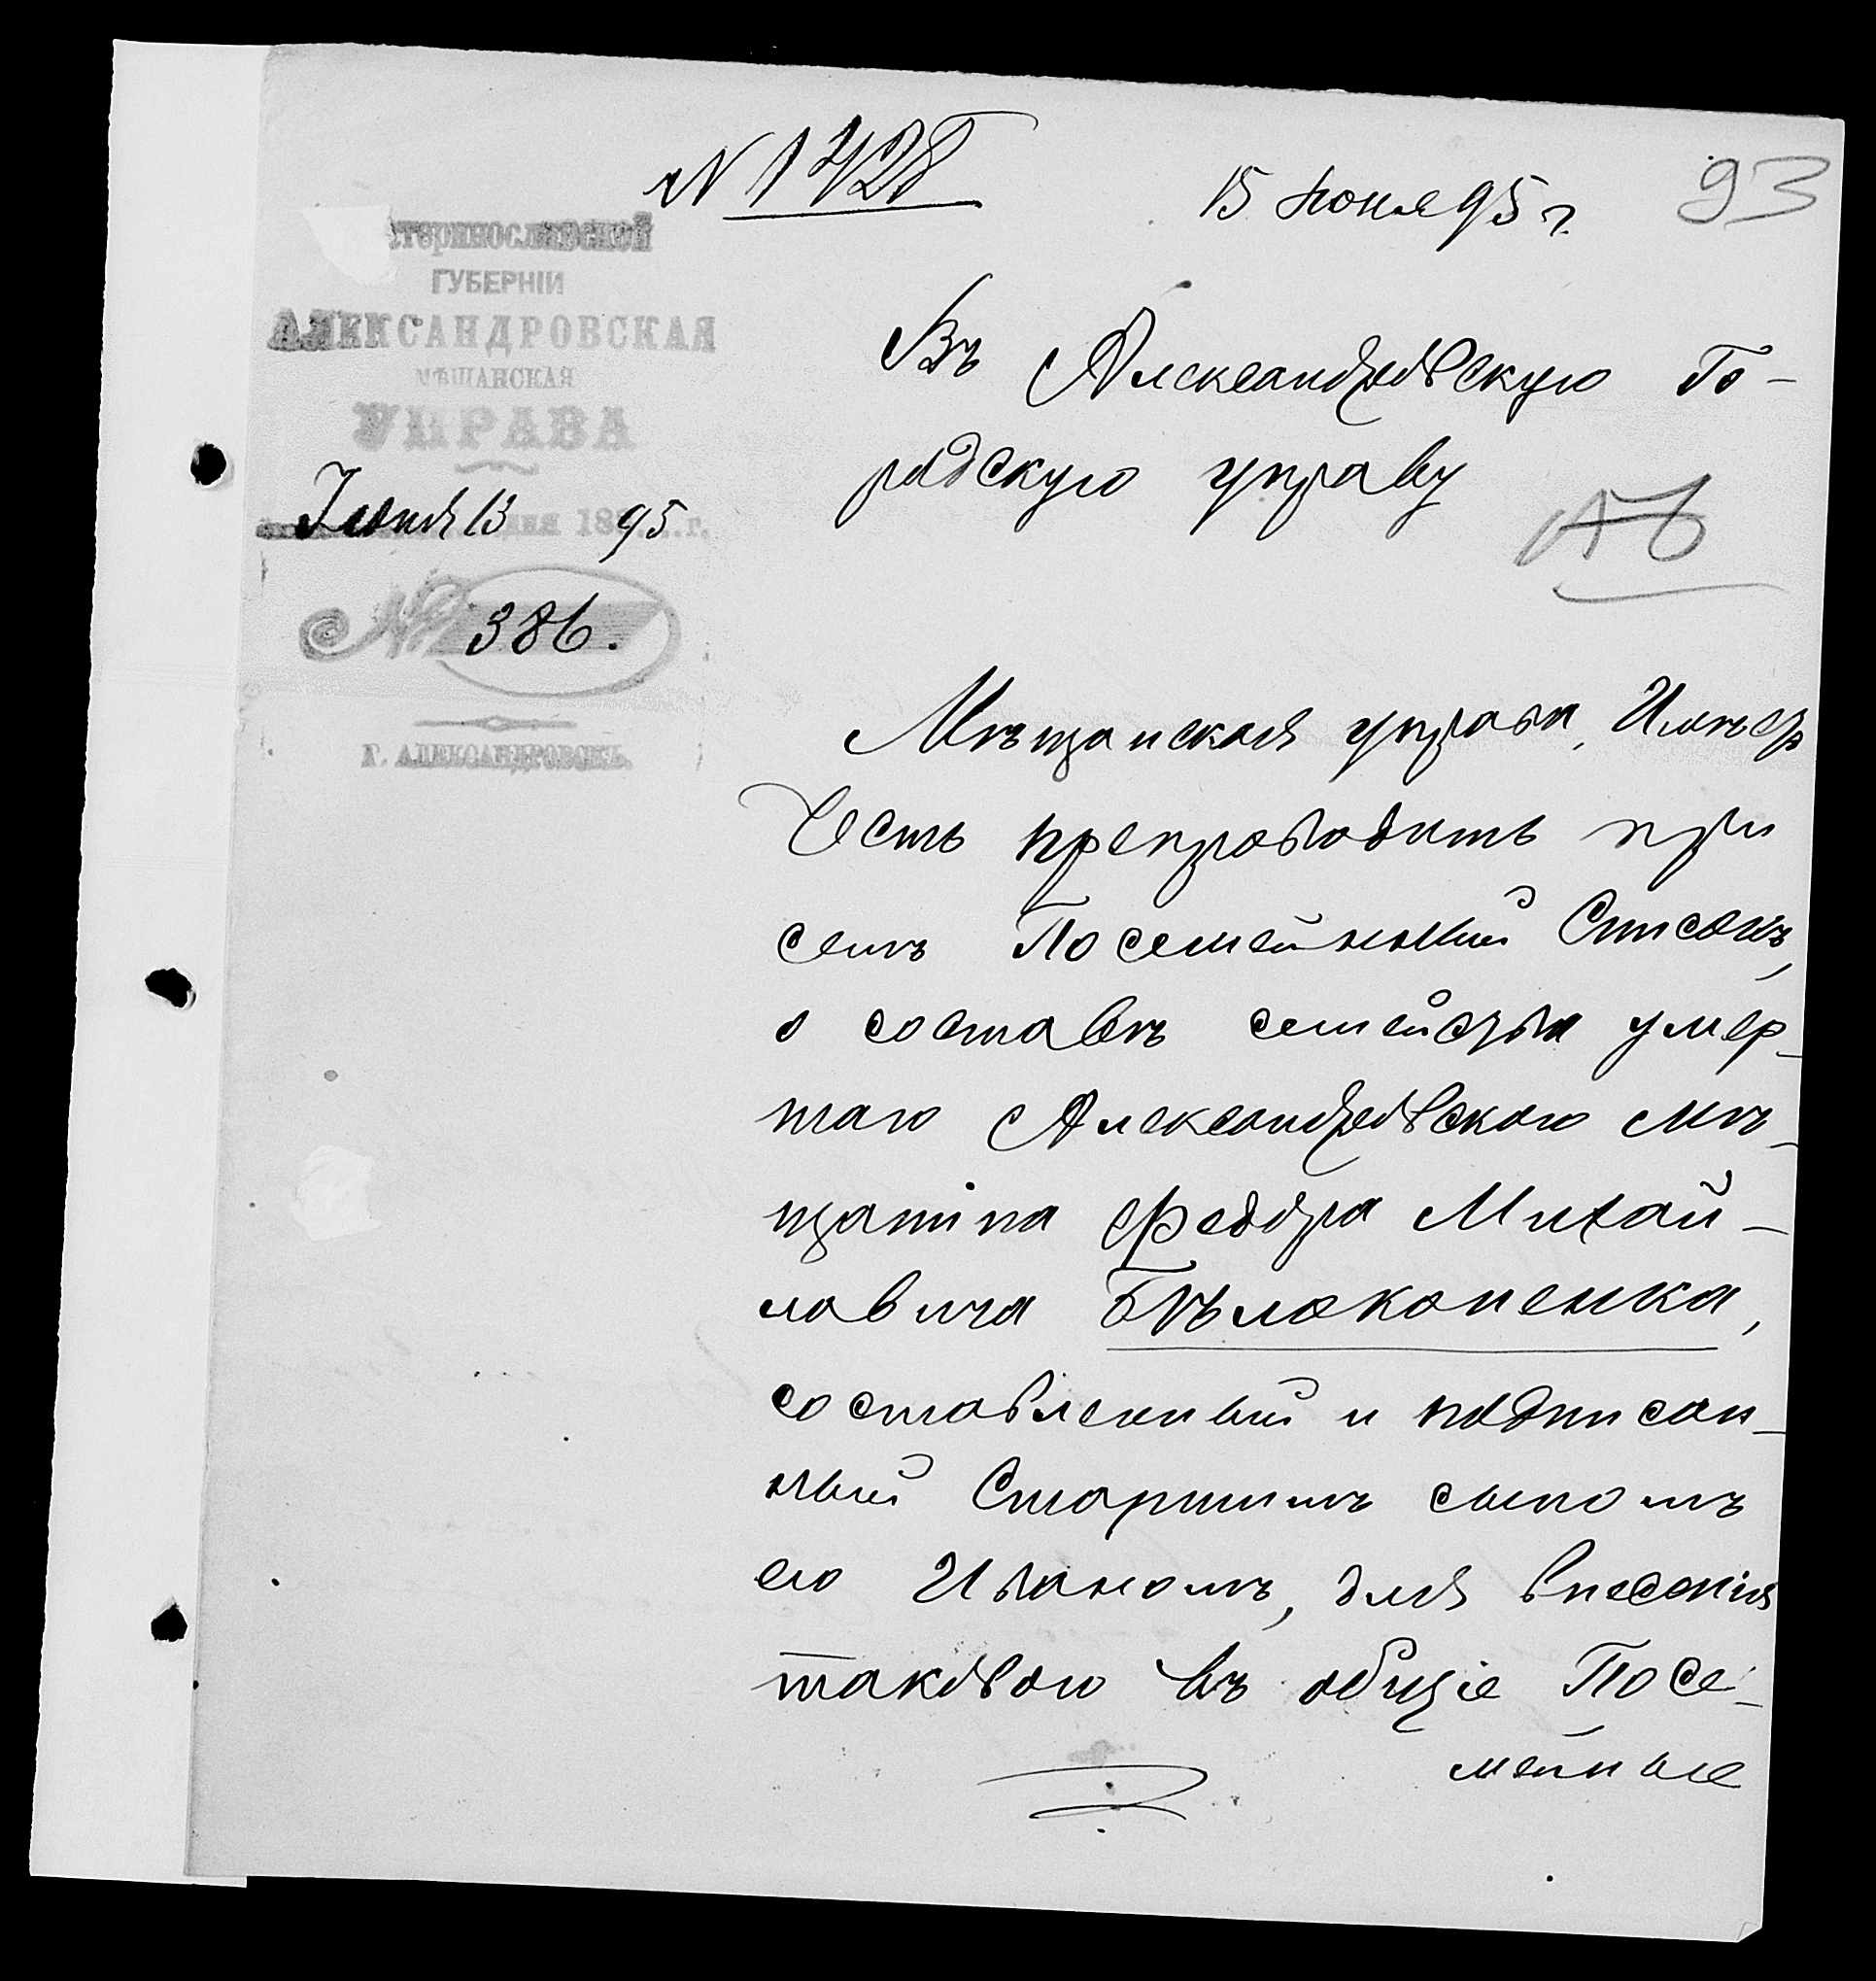 № 1728
15 Июня 95 г.
93
теринославской
ГУБЕРНІИ
АЛЕКСАНДРОВСКАЯ
МѢЩАНСКАЯ
УПРАВА
Іюня 13 дня 1895 г.
№ 386.
Г. АЛЕКСАНДРОВСКЪ.
Въ Александровскую Го-
родскую управу
Мѣщанская управа, Имѣетъ
Честь препроводить при
семъ Посемейный Списокъ,
о составѣ семейства умер-
шаго Александровскаго мѣ-
щанина Федора Михай-
ловича Бѣлоконенка,
составленный и подписан-
ный Старшимъ сыномъ
его Иваномъ, для внесенія
таковаго въ общіе Посе-
мейные